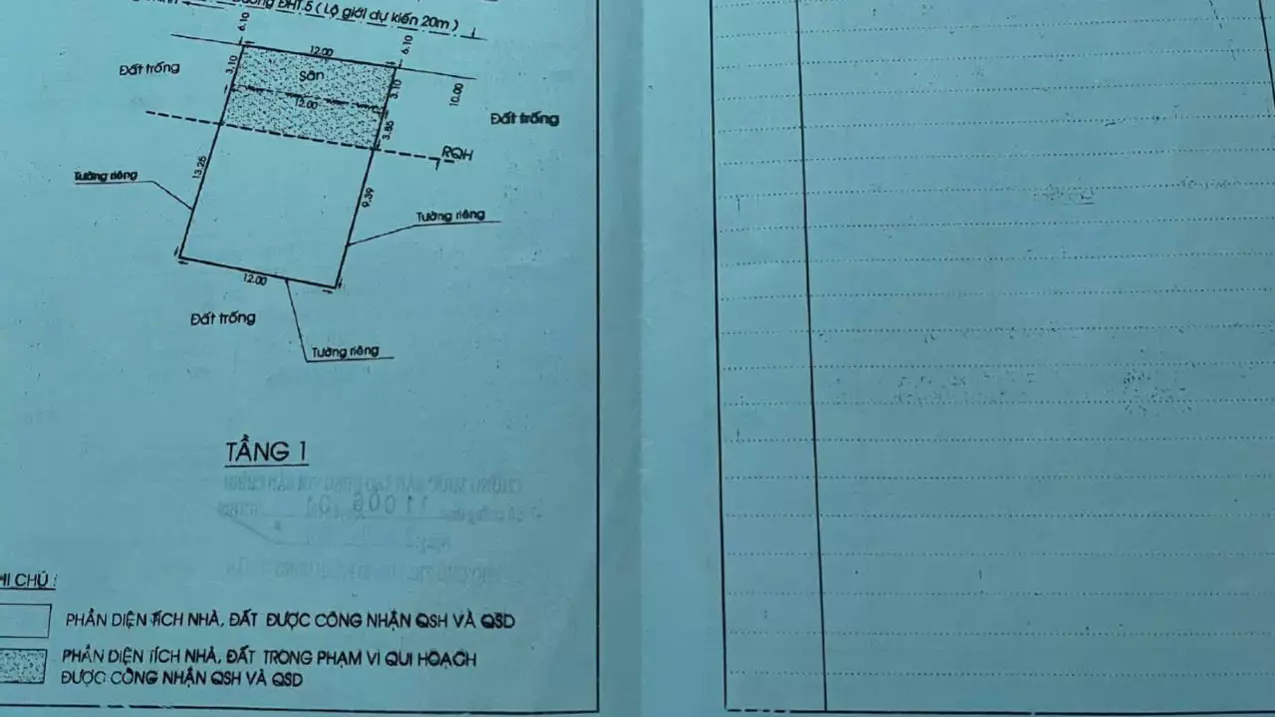 ĐHT.5 ( Lộ giới dự kiến 20m )
6.10
6.10
12.00
Đất trống
3.10
Sân
3.10
10.00
12.00
Đất trống
3.85
RQH
Tường riêng
13.25
9.39
Tường riêng
12.00
Đất trống
Tường riêng
TẦNG 1
CHÚ :
PHẦN DIỆN TÍCH NHÀ, ĐẤT ĐƯỢC CÔNG NHẬN QSH VÀ QSD
PHẦN DIỆN TÍCH NHÀ, ĐẤT TRONG PHẠM VI QUI HOẠCH
ĐƯỢC CÔNG NHẬN QSH VÀ QSD